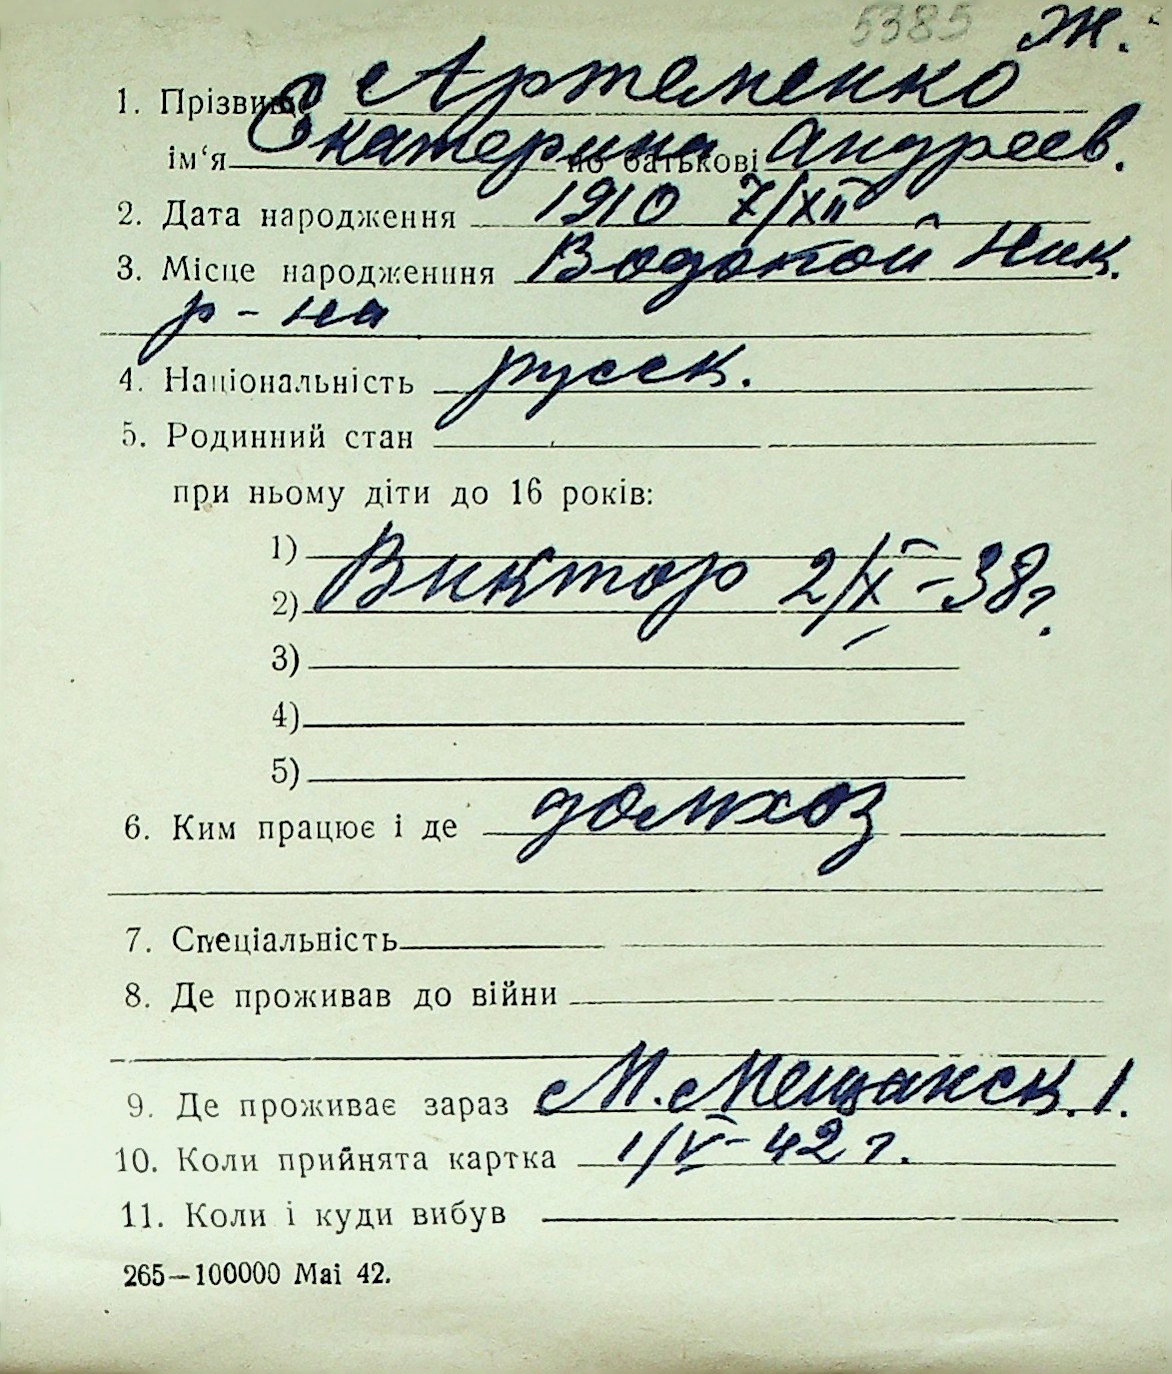 5385 Ж.
1. Прізвище Артеменко
ім‘я Екатерина по батькові Андреев.
2. Дата народження 1910 7/XII
3. Місце народженння Водопой Ник.
р-на
4. Національність русск.
5. Родинний стан
при ньому діти до 16 років:
1)
2) Виктор 2/X-38г.
3)
4)
5)
6. Ким працює і де домхоз
7. Спеціальність
8. Де проживав до війни
9. Де проживає зараз М. Мещанск. 1.
10. Коли прийнята картка 1/V-42 г.
11. Коли і куди вибув
265—100000 Mai 42.